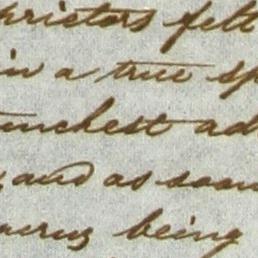 prietors felt
in a true sp
unchest ad
and as soon
acruz being